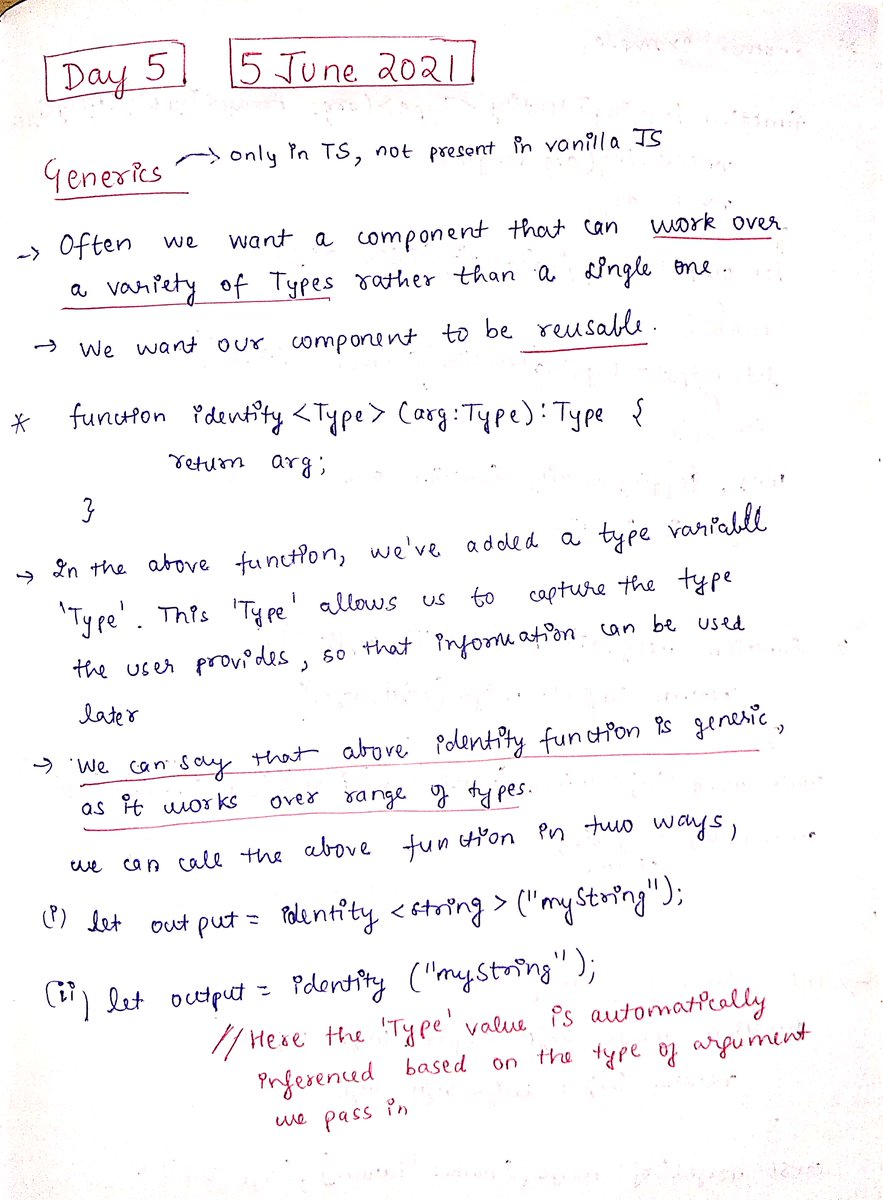 Day 5 5 June 2021
Generics → only in TS, not present in vanilla JS
→ Often we want a component that can work over
a variety of Types rather than a single one.
→ We want our component to be reusable.
* function identity <Type> (arg:Type):Type {
return arg;
}
→ In the above function, we've added a type variable
'Type'. This 'Type' allows us to capture the type
the user provides, so that information can be used
later
→ We can say that above identity function is generic,
as it works over range of types.
we can call the above function in two ways,
(i) let output = identity <string> ("myString");
(ii) let output = identity ("myString");
// Here the 'Type' value is automatically
inferenced based on the type of argument
we pass in